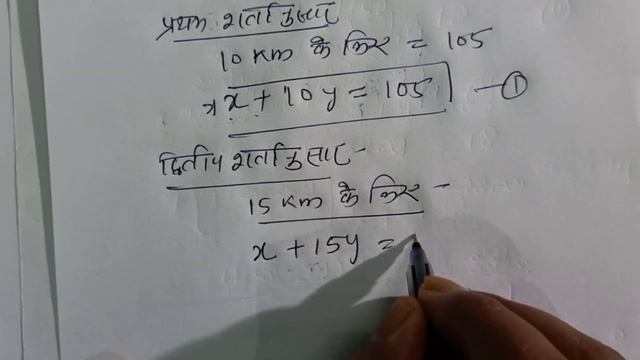 प्रथम शर्तानुसार
10 km के लिए = 105
x + 10y = 105 —①
द्वितीय शर्तानुसार -
15 km के लिए -
x + 15y =